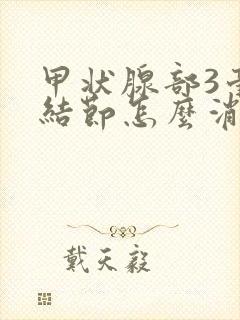 甲状腺部3
結節怎麼消
戴天毅